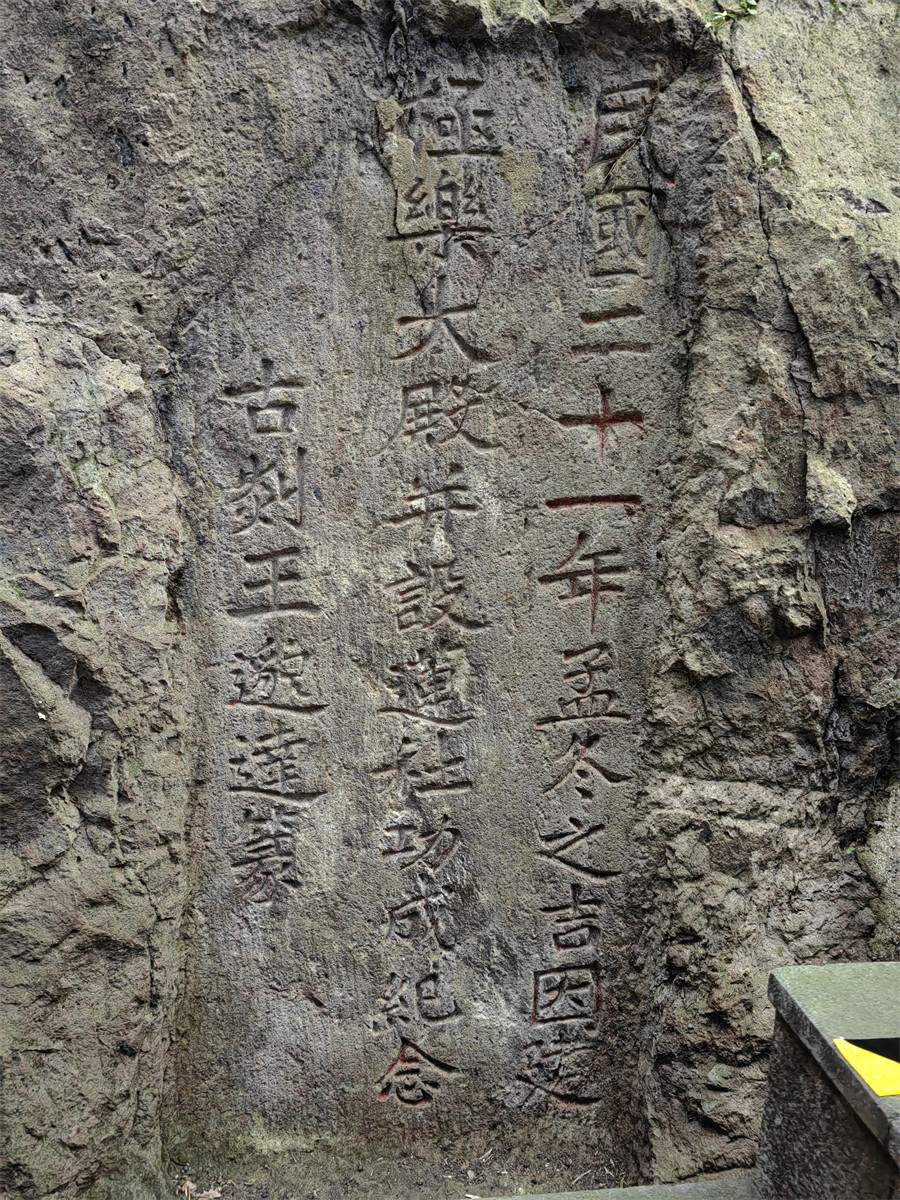 民國二十一年孟冬之吉因建
極樂大殿并設蓮社功成紀念
古剡王邈達募